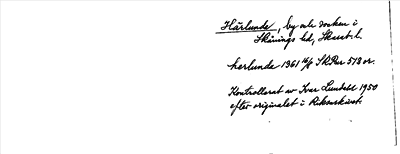 Härlunde, by och socken i
Skånings hd, Skarab. l.
herlunde 1361 16/6 SkPu 578 or.
Kontrollerat av Ivar Lundahl 1950
efter originalet i Riksarkivet.